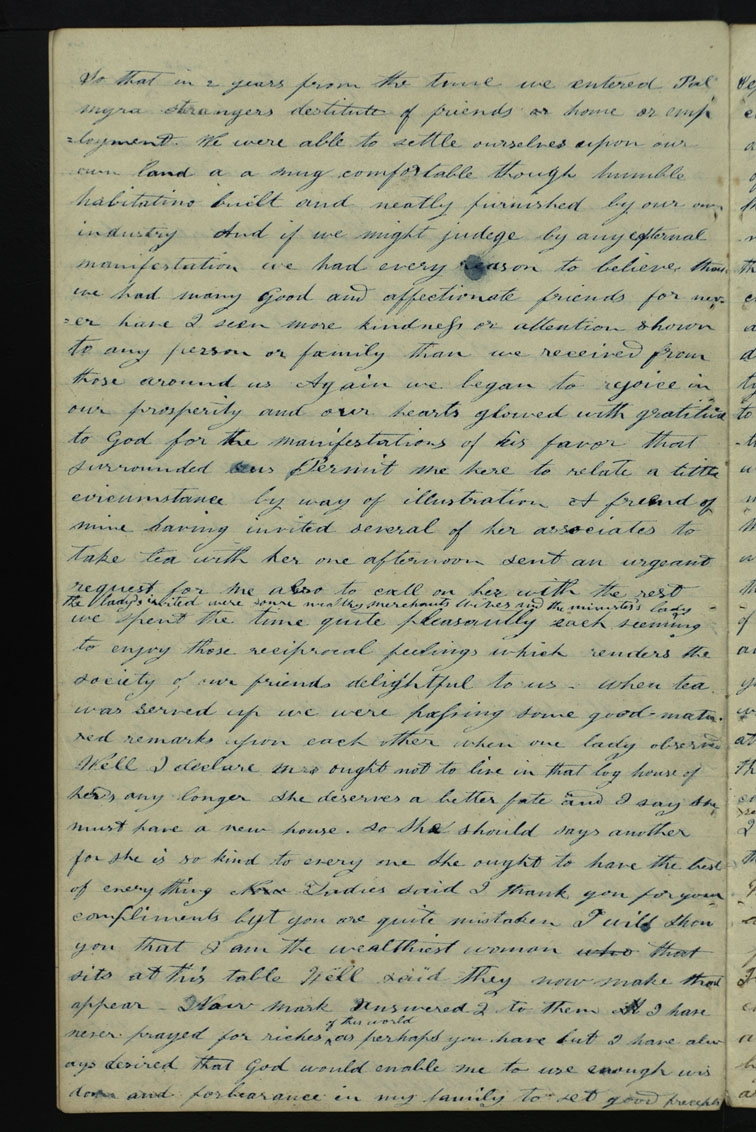 So that in 2 years from the time we entered Pal
myra strangers destitute of friends or home or emp
=loyment. We were able to settle ourselves upon our
own land a a snug comfortable though humble
habitatino built and neatly furnished by our own
industry And if we might judege by any external
manifestation we had every reason to believe
we had many good and affectionate friends for nev=
=er have I seen more kindness or attention shown
to any person or family than we received from
those around us Again we began to rejoice in
our prosperity and our hearts glowed with gratitude
to God for the manifestations of his favor that
surrounded us Permit me here to relate a little
circumstance by way of illustration A friend of
mine having invited several of her associates to
take tea with her one afternoon sent an urgeant
request for me also to call on her with the rest
the lady's invited were some wealthy merchants wives and the minister's lady
we spent the time quite pleasantly each seeming
to enjoy those reciprocal feelings which renders the
society of our friends delightful to us - when tea
was served up we were passing some good-natu-
red remarks upon each other when one lady observed
Well I declare ought not to live in that log house of
her's any longer she deserves a better fate and I say she
must have a new house. so she should says another
for she is so kind to every one she ought to have the best
of every thing Ladies said I thank you for your
compliments but you are quite mistaken I will show
you that I am the wealthiest woman who that
sits at this table Well said they now make that
appear - Now mark answered I to them I have
never prayed for riches of the world as perhaps you have but I have alw
ays desired that God would enable me to use enough wis
dom and forbearance in my family to set good precepts